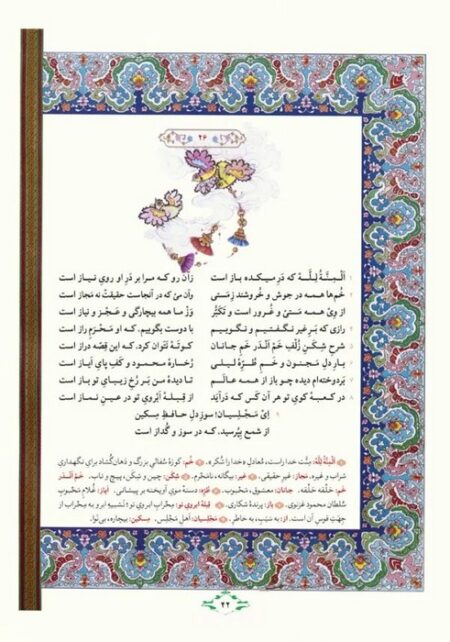 ۲۶
۱ اَلْمِنَّةُ لِلّٰه که دَرِ میکده باز است زان رو که مرا بر دَرِ او رویِ نیاز است
۲ خُم‌ها همه در جوش و خُروشند زِ مَستی وآن مِی که در آنجاست حقیقت نه مَجاز است
۳ از وِیْ همه مَستیّ و غُرور است و تَکَبُّر وَزْ ما همه بیچارگی و عَجْز و نیاز است
۴ رازی که بَرِ غیر نـگـفـتـیـم و نـگـویـیـم با دوست بگوییم، که او مَحْرَمِ راز است
۵ شرحِ شِکَنِ زُلْفِ خَم اَنْدَر خَمِ جانان کوتَهْ نَتَوان کرد، که این قِصّه دراز است
۶ بارِ دلِ مَجنون و خَمِ طُرّهٔ لیلی رُخسارهٔ محمود و کفِ پایِ اَیاز است
۷ بَردوخته‌ام دیده چو باز از همه عالَم تا دیدهٔ من بَر رُخِ زیبایِ تو باز است
۸ در کعبهٔ کویِ تو هر آن کَس که دَرآید از قبلهٔ اَبرویِ تو در عینِ نماز است
۹ اِیْ مَجْلِسیان! سوزِ دلِ حافظِ مِسکین
از شمع بپُرسید، که در سوز و گُداز است
اَلْمِنَّةُ لِلّٰه: مِنّت خدا راست، مُعادلِ «خدا را شُکر». خُم: کوزهٔ سُفالیِ بزرگ و دَهان‌گُشاد برای نگهداریِ
شراب و غیره. مَجاز: غیرِ حقیقی. غیر: بیگانه، نامَحْرَم. شِکَن: چین و شِکَن، پیچ و تاب. خَم اَنْدَر
خَم: حَلْقه حَلْقه. جانان: معشوق، مَحْبوب. طُرّه: دستهٔ مویِ آویخته بر پیشانی. اَیاز: غُلامِ مَحْبوبِ
سُلطان محمود غزنوی. باز: پرندهٔ شکاری. قبلهٔ ابرویِ تو: تَشبیهِ ابرو به مِحْراب از
جهتِ قوسِ آن است. از: به سَبَبِ، به خاطرِ. مَجْلِسیان: اَهلِ مَجْلِس. مِسکین: بیچاره، بی‌نَوا.
۲۲